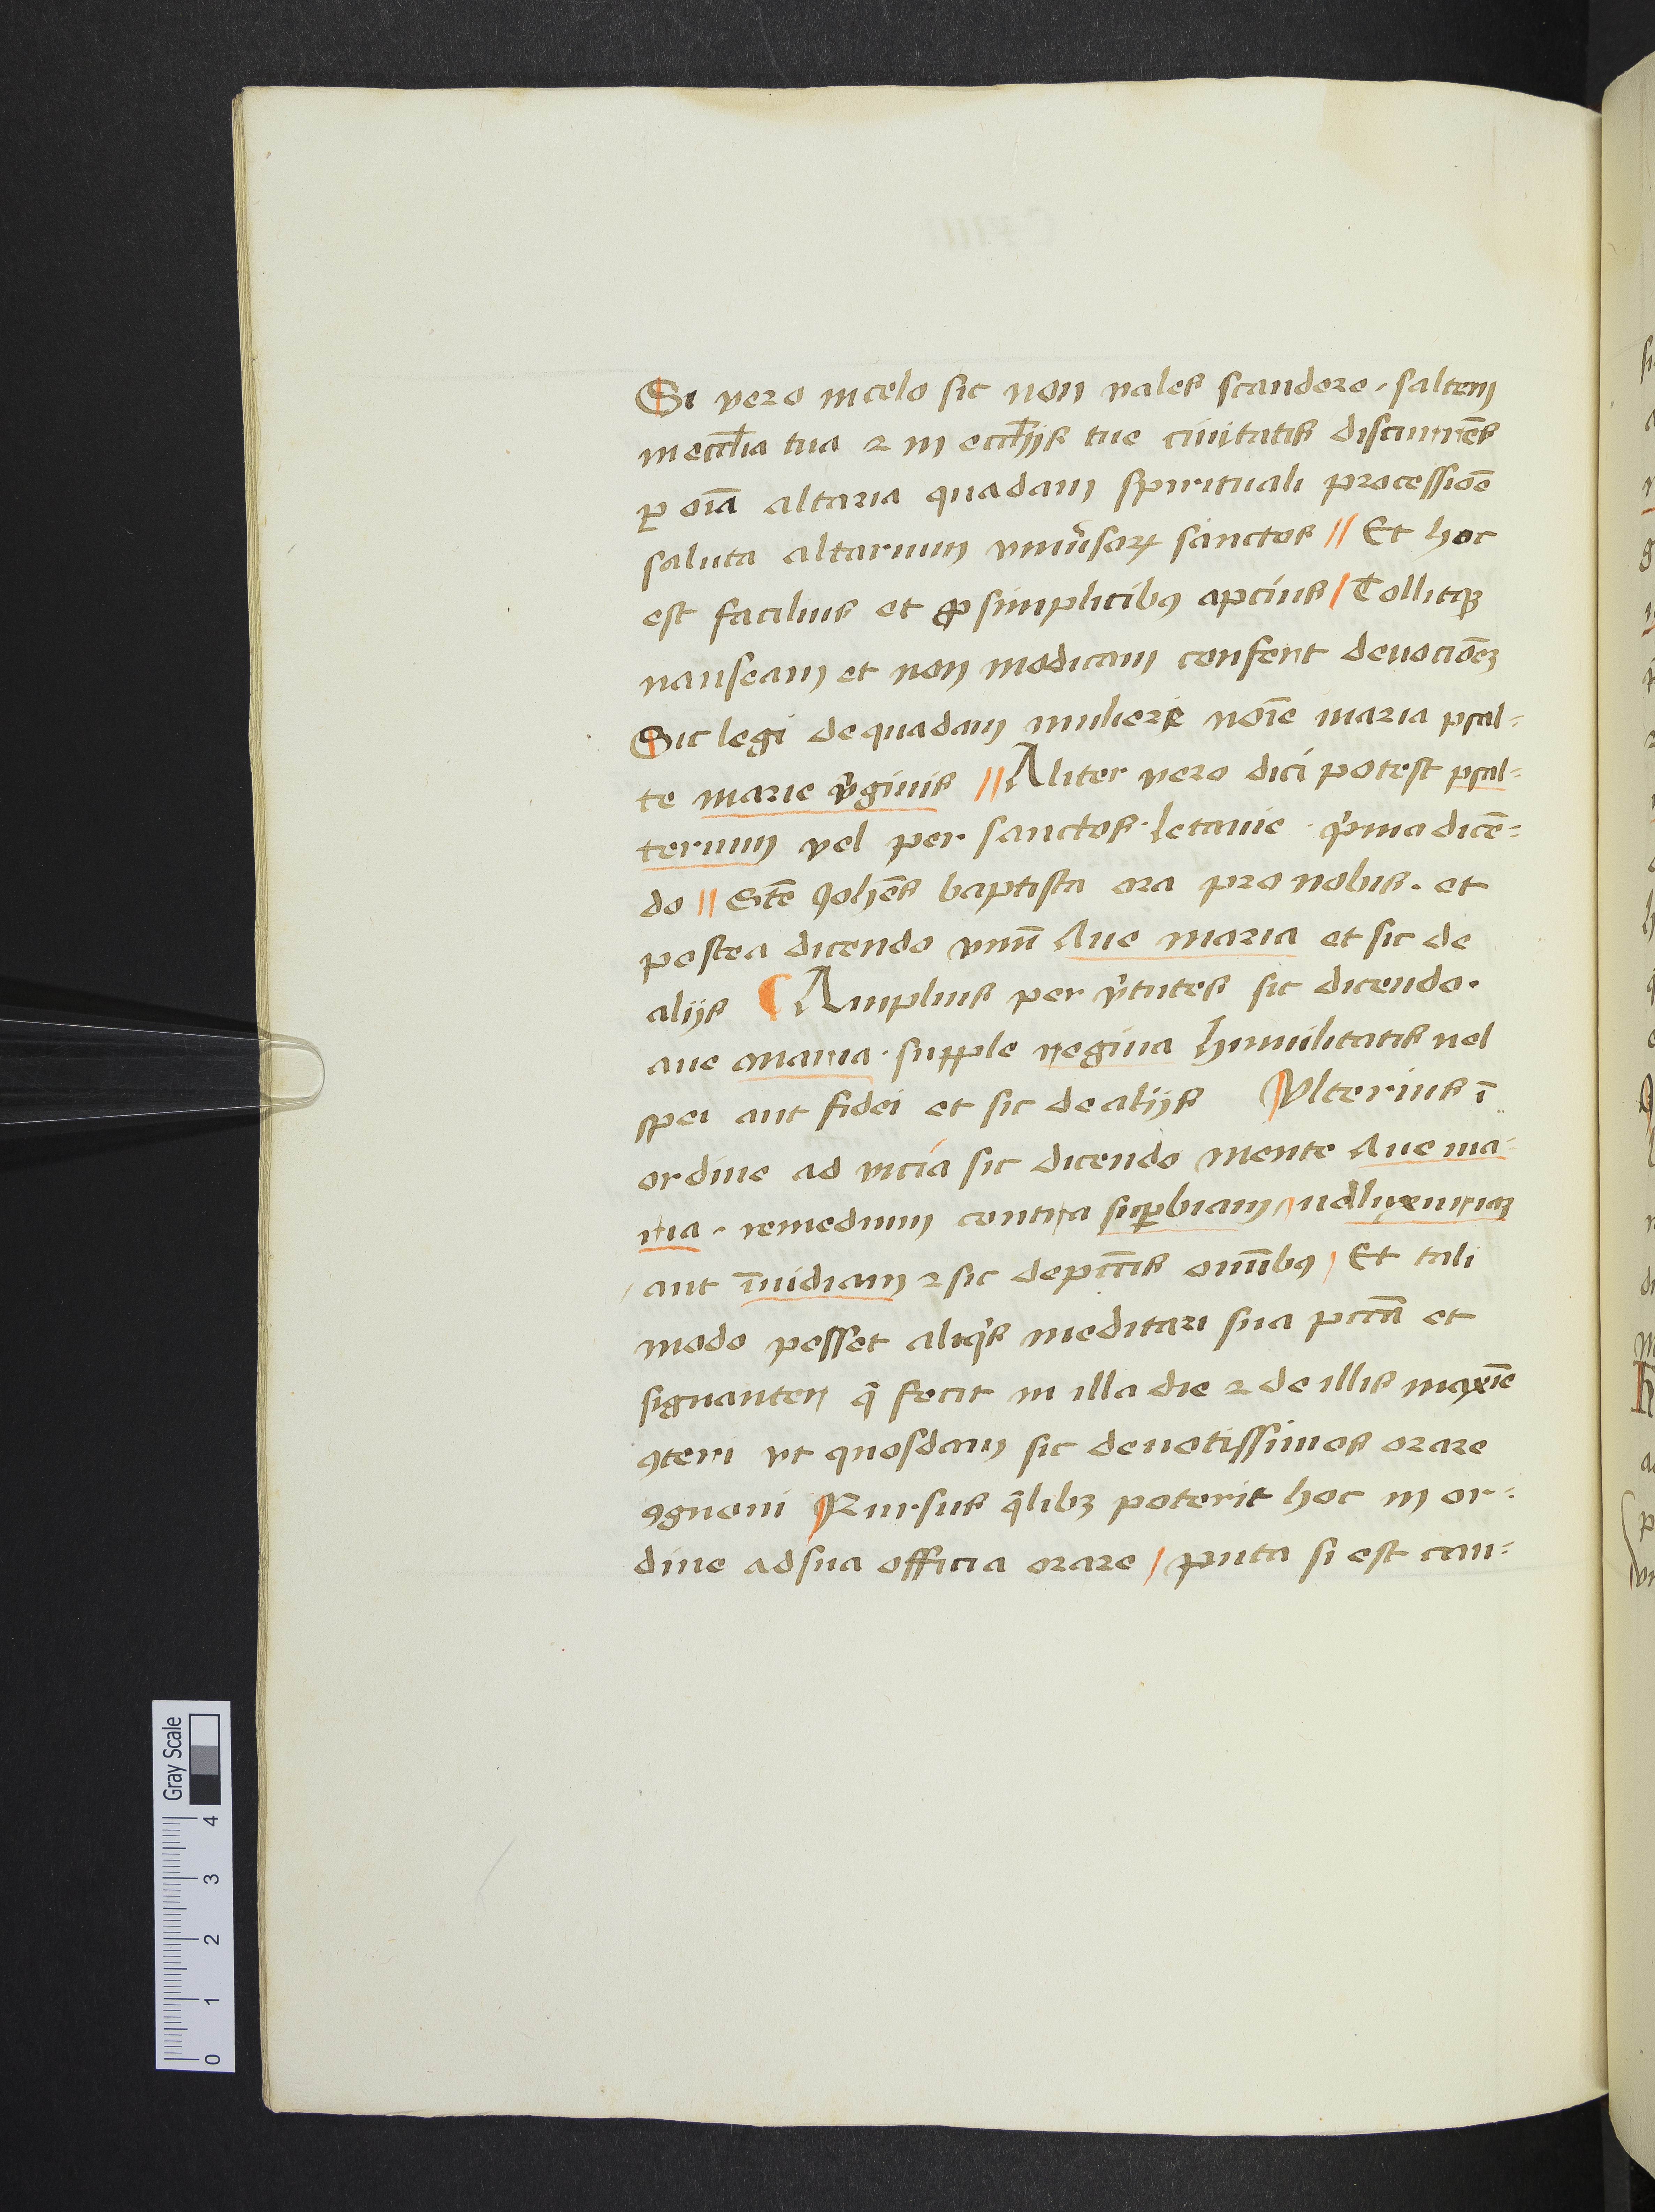 Si vero in celo sic non vales scandere. saltem
in eccl̄ia tua ⁊ in eccl̄ijs tue ciuitatis discurrēs
ꝑ oīa altaria quadam spirituali processiōe
saluta altarium vniu̾soꝝ sanctos // Et hoc
est facilius et ꝓ simplicibꝰ apcius / Tollitqꝫ
nauseam et non modicam confert deuociōeꝫ
Sic legi de quadam muliere noīe maria psal=
te marie v̾ginis // Aliter vero dici potest psal=
terium vel per sanctos letanie p̾ma dicē=
do // Scē Johēs baptista ora pro nobis. et
postea dicendo vnū Aue maria et sic de
alijs ¶ Amplius per v̾tutes sic dicendo.
aue maria. supple regina humilitatis uel
spei aut fidei et sic de alijs Vlterius ī
ordine ad vicia sic dicendo mente Aue ma=
ria. remedium contra suꝑbiam / uel luxuriaꝫ
aut īuidiam ⁊ sic de pcc̄is omībꝰ / Et tali
modo posset aliq̾s meditari sua pcc̄a et
signanter q̄ fecit in illa die ⁊ de illis maxīe
ꝯteri vt quosdam sic deuotissimos orare
ꝯgnoui Rursus q̄libꝫ poterit hoc in or=
dine ad sua officia orare / puta si est can=
Gray Scale
4
3
2
1
0